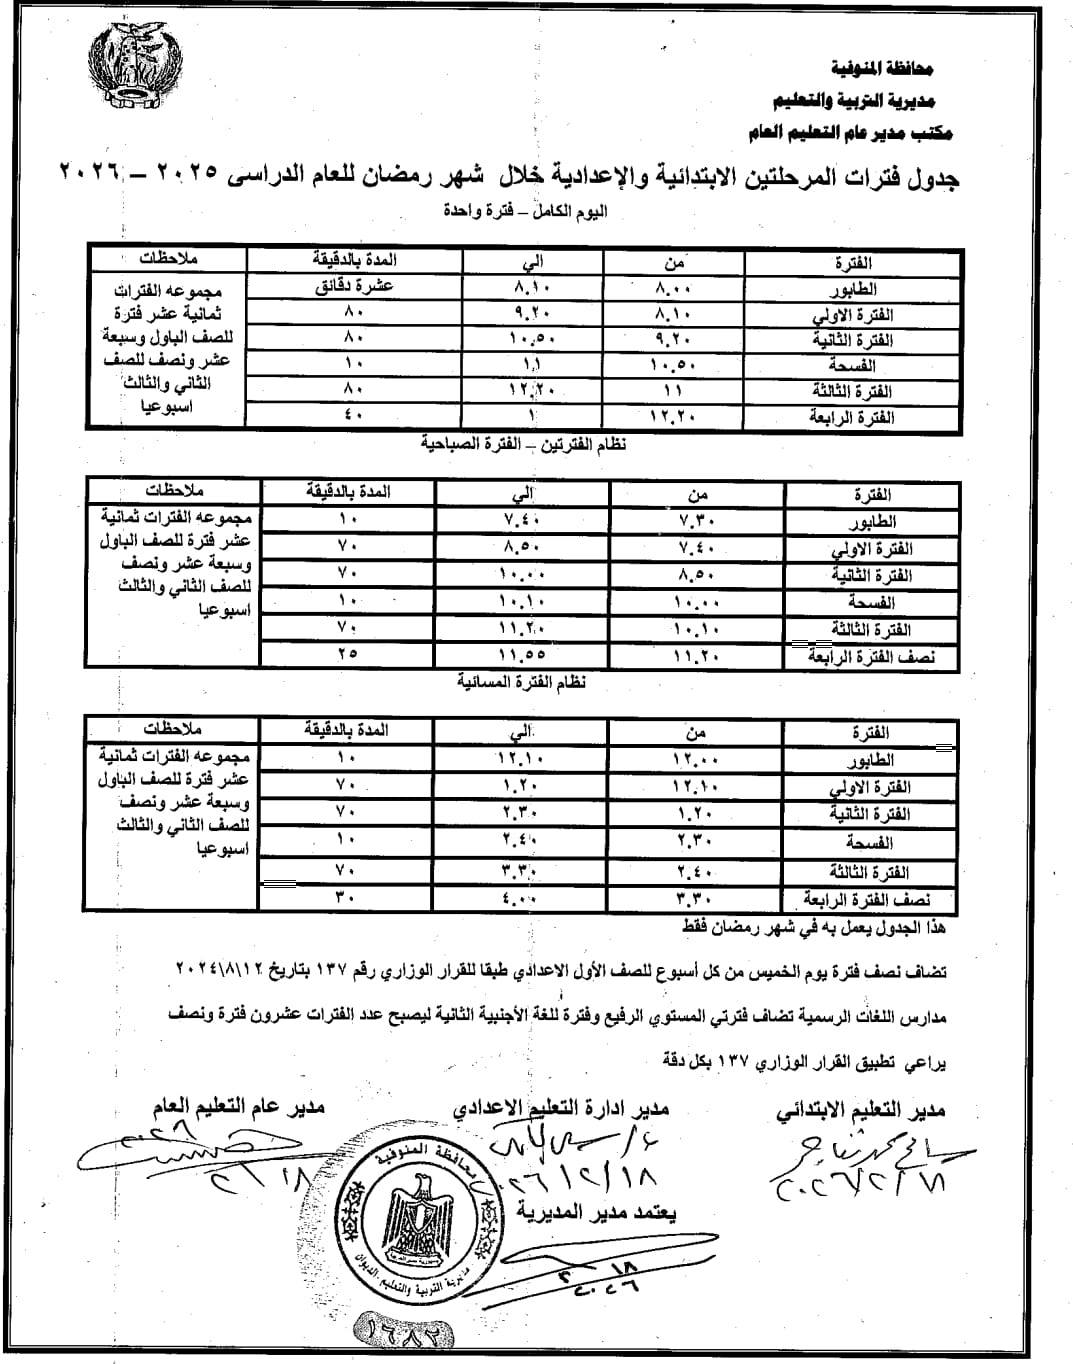 محافظة المنوفية
مديرية التربية والتعليم
مكتب مدير عام التعليم العام
جدول فترات المرحلتين الابتدائية والإعدادية خلال شهر رمضان للعام الدراسى ٢٠٢٥ – ٢٠٢٦
اليوم الكامل – فترة واحدة
الفترة من الي المدة بالدقيقة ملاحظات
الطابور ٨.٠٠ ٨.١٠ عشرة دقائق
الفترة الاولي ٨.١٠ ٩.٢٠ ٨٠
الفترة الثانية ٩.٢٠ ١٠.٥٠ ٨٠
الفسحة ١٠.٥٠ ١١ ١٠
الفترة الثالثة ١١ ١٢.٢٠ ٨٠
الفترة الرابعة ١٢.٢٠ ١ ٤٠
مجموعه الفترات
ثمانية عشر فترة
للصف الباول وسبعة
عشر ونصف للصف
الثاني والثالث
اسبوعيا
نظام الفترتين – الفترة الصباحية
الفترة من الي المدة بالدقيقة ملاحظات
الطابور ٧.٣٠ ٧.٤٠ ١٠
الفترة الاولي ٧.٤٠ ٨.٥٠ ٧٠
الفترة الثانية ٨.٥٠ ١٠.٠٠ ٧٠
الفسحة ١٠.٠٠ ١٠.١٠ ١٠
الفترة الثالثة ١٠.١٠ ١١.٢٠ ٧٠
نصف الفترة الرابعة ١١.٢٠ ١١.٥٥ ٢٥
مجموعه الفترات ثمانية
عشر فترة للصف الباول
وسبعة عشر ونصف
للصف الثاني والثالث
اسبوعيا
نظام الفترة المسائية
الفترة من الي المدة بالدقيقة ملاحظات
الطابور ١٢.٠٠ ١٢.١٠ ١٠
الفترة الاولي ١٢.١٠ ١.٢٠ ٧٠
الفترة الثانية ١.٢٠ ٢.٣٠ ٧٠
الفسحة ٢.٣٠ ٢.٤٠ ١٠
الفترة الثالثة ٢.٤٠ ٣.٣٠ ٧٠
نصف الفترة الرابعة ٣.٣٠ ٤.٠٠ ٣٠
مجموعه الفترات ثمانية
عشر فترة للصف الباول
وسبعة عشر ونصف
للصف الثاني والثالث
اسبوعيا
هذا الجدول يعمل به في شهر رمضان فقط
تضاف نصف فترة يوم الخميس من كل أسبوع للصف الأول الاعدادي طبقا للقرار الوزاري رقم ١٣٧ بتاريخ ١٢\٨\٢٠٢٤
مدارس اللغات الرسمية تضاف فترتي المستوي الرفيع وفترة للغة الأجنبية الثانية ليصبح عدد الفترات عشرون فترة ونصف
يراعي تطبيق القرار الوزاري ١٣٧ بكل دقة
مدير التعليم الابتدائي
مدير ادارة التعليم الاعدادي
مدير عام التعليم العام
٢٦/٢/١٨
يعتمد مدير المديرية
محافظة المنوفية
مديرية التربية والتعليم - الديوان
١٦٨٢